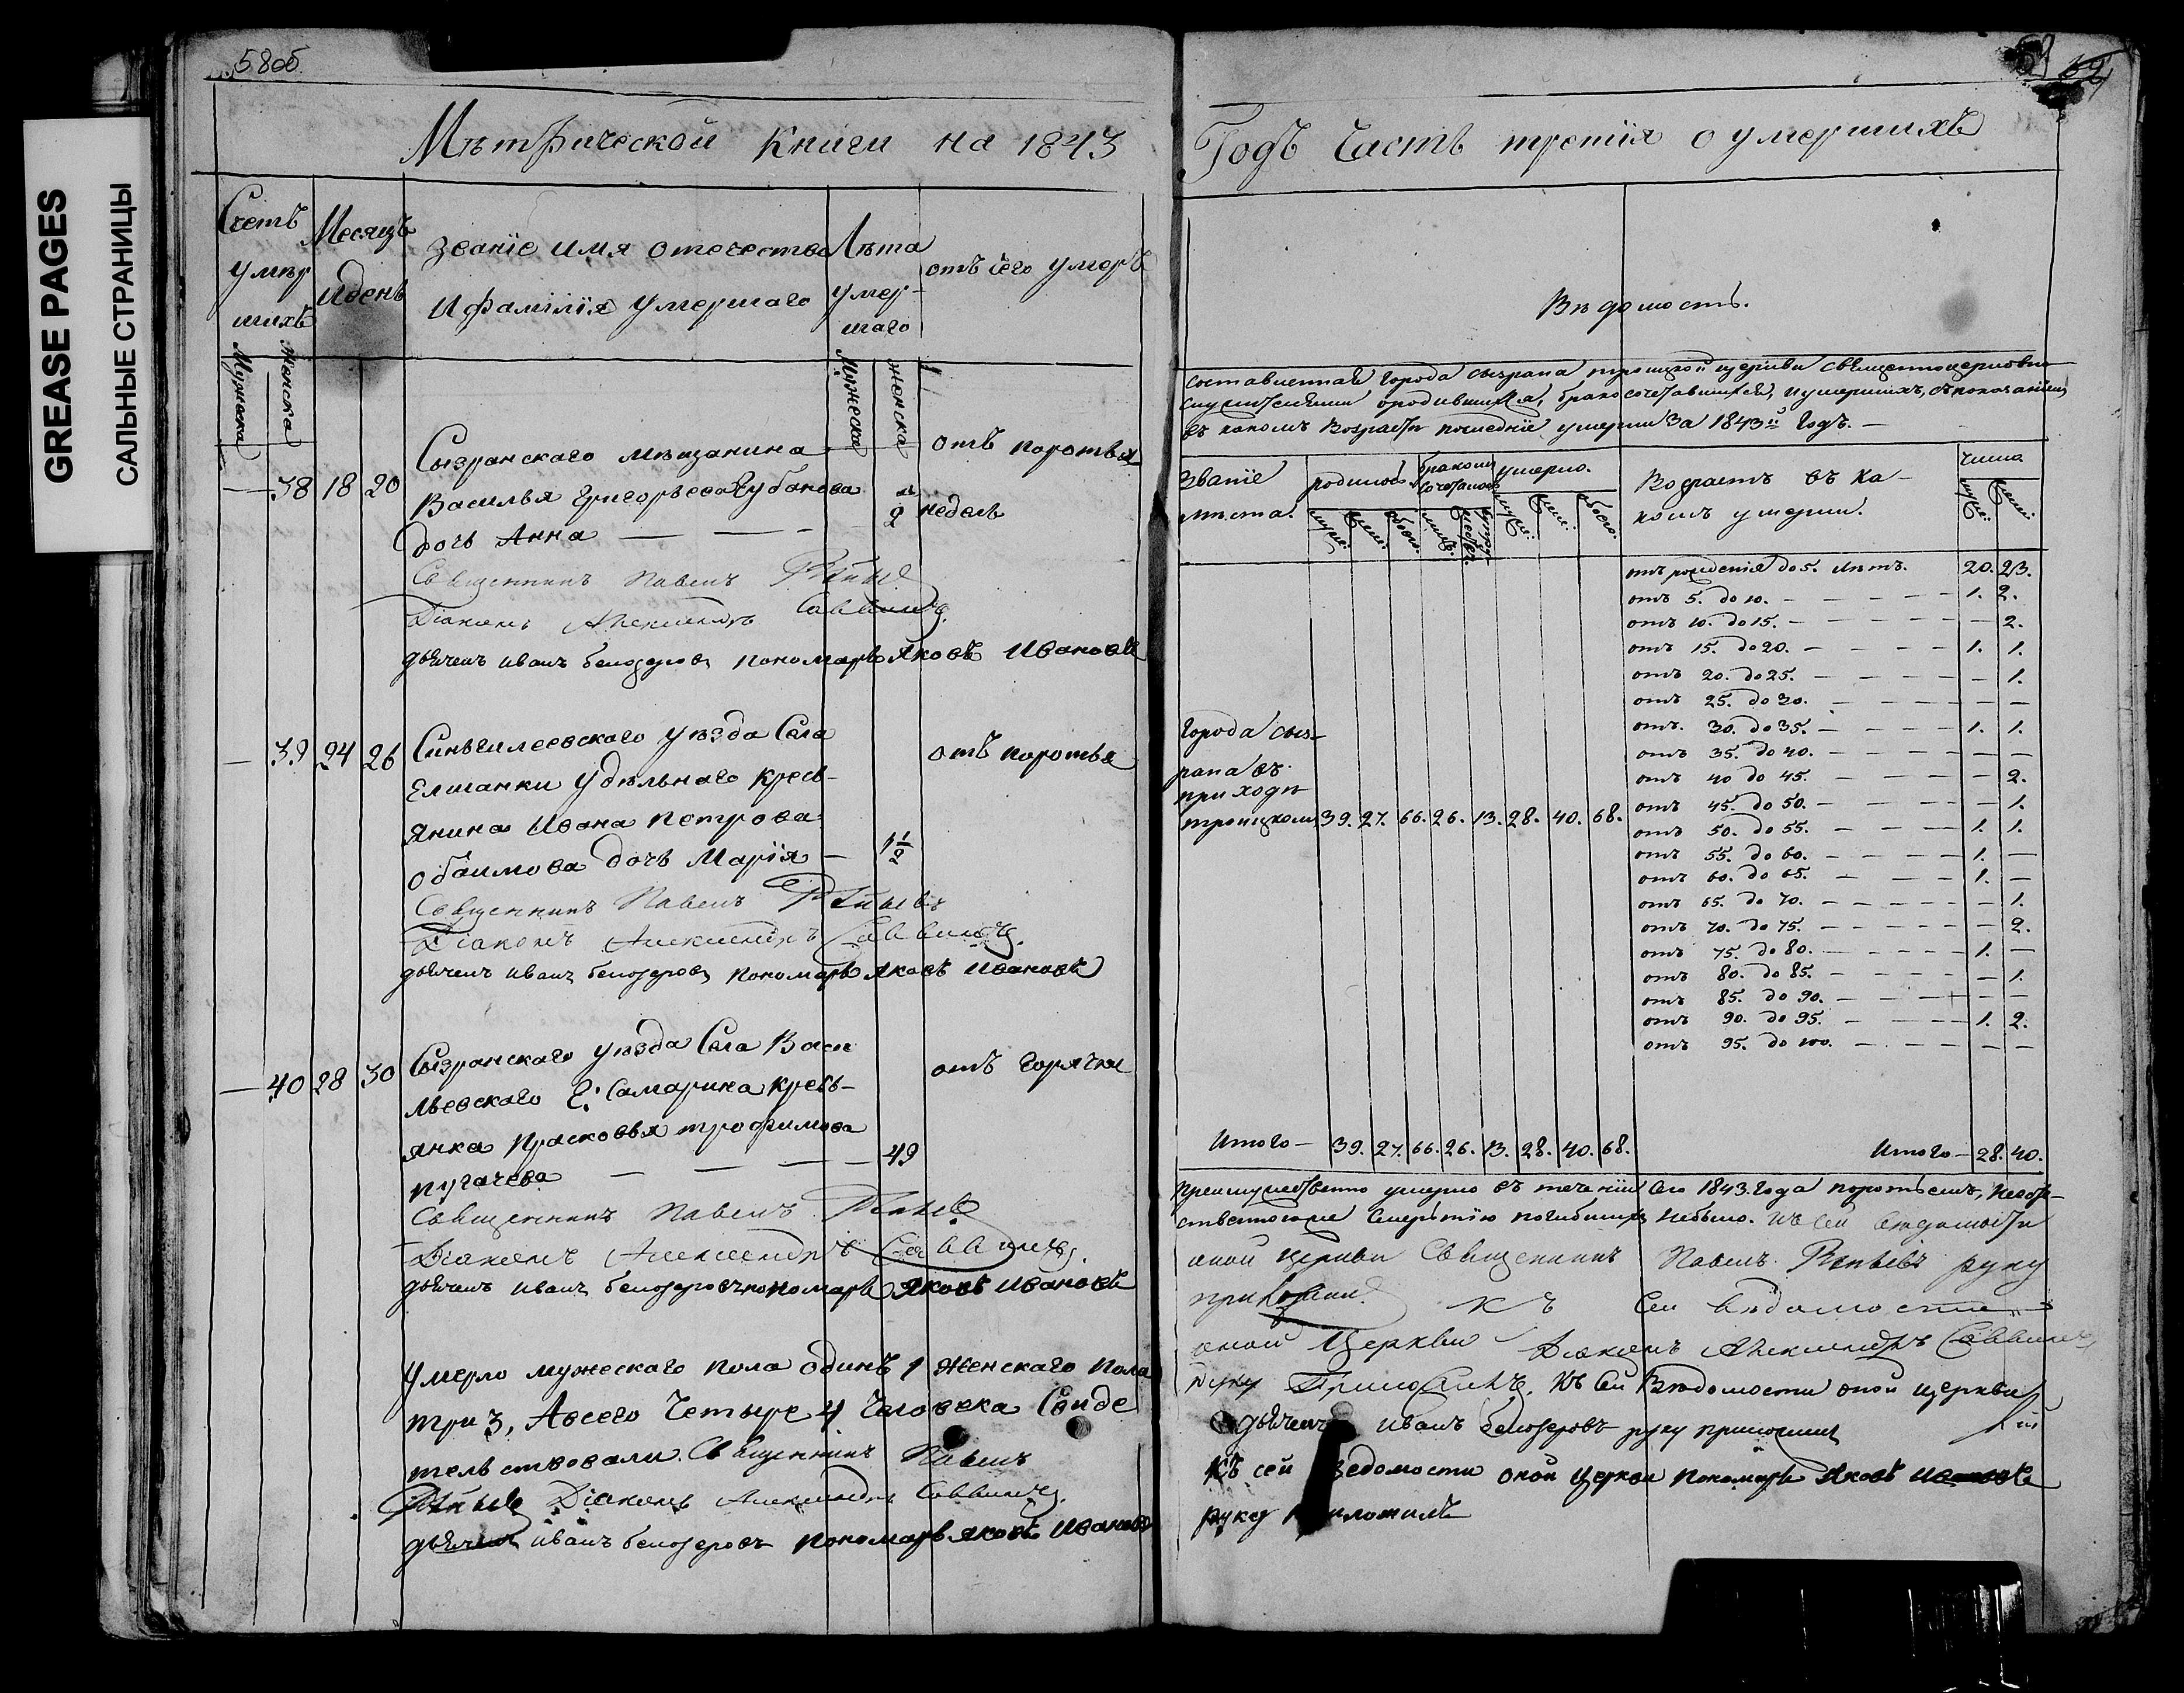 GREASE PAGES
САЛЬНЫЕ СТРАНИЦЫ
58об.
Мѣтрической книги на 1843
Счетъ умерших
Мужеска
Женска
Месяцъ
и день
Званіе имя отечество
и фамилія умершаго
Лѣта
умер-
шаго
Мужеска
женска
отъ чего умеръ
38 18 20
Сызранскаго мѣщанина
Василья Григорьева Губанова
дочь Анна — —
2 недель
отъ поротья
Священникъ Павелъ
Діаконъ Александръ
дьячекъ иванъ белозеровъ пономарь Яковъ Ивановъ
— 39 24 26
Синьгилеевскаго уѣзда Села
Елшанки удѣльнаго кресь-
янина Ивана Петрова
дочь Марія —
1½
отъ поротья
Священникъ Павелъ
Діаконъ Александръ
дьячекъ иванъ белозеровъ пономарь Яковъ Ивановъ
— 40 28 30
Сызранскаго уѣзда Села Васи
льевскаго Г. Самарина кресь-
янка Прасковья трофимова
пугачева — — — —
49
отъ горячки
Священникъ Павелъ
Діаконъ Александръ
дьячекъ иванъ белозеровъ пономарь Яковъ Ивановъ
умерло мужескаго пола одинъ 1 женскаго пола
три 3, Авсего четыре 4 человека Свиде
тельствовали. Священникъ Павелъ
Діаконъ Александръ
дьячекъ иванъ белозеровъ пономарь яковъ Ивановъ
59
Годъ Часть третія о умершихъ
Вѣдомость.
составленная города сызрана троицкой церкви священноцерковно
служителями ородившихся, бракосочетавшихся, и умершихъ, съ показаніемъ
въ какомъ возрастѣ последніе умерли за 1843й годъ. —
Званіе
мѣста.
родилось
муж:
жен:
обоего.
бракомъ
сочеталось
умерло.
муж:
жен:
обоего.
Возрастъ въ ка-
комъ умерли.
число
муж:
жен:
отъ рожденія до 5. лѣтъ. 20. 23.
отъ 5. до 10. — 1. 2.
отъ 10. до 15. — — 2.
отъ 15. до 20. — 1. 1.
отъ 20. до 25. — — 1.
отъ 25. до 30. — — —
отъ 30. до 35. — 1. 1.
отъ 35. до 40. — — —
отъ 40 до 45. — — 2.
отъ 45. до 50. — — 1.
отъ 50. до 55. — 1. 1.
отъ 55. до 60. — 1. —
отъ 60. до 65. — 1. —
отъ 65. до 70. — — 1.
отъ 70. до 75. — — 2.
отъ 75. до 80. — 1. —
отъ 80. до 85. — — 1.
отъ 85. до 90. — — —
отъ 90. до 95. — 1. 2.
отъ 95. до 100. — — —
города сыз-
рана въ
приходѣ
троицкомъ 39. 27. 66. 26. 13. 28. 40. 68.
Итого — 39. 27. 66. 26. 13. 28. 40. 68.
Итого — 28. 40.
преимущественно умерло въ теченіи сего 1843. года поротьемъ,
смертію погибшихъ небыло. къ сей ведомости
оной церкви Священникъ Павелъ руку
приложилъ къ сей вѣдомости
оной Церкви Діаконъ Александръ
руку Приложилъ. Къ сей Вѣдомости оной церкви
дьячекъ иванъ белозеровъ руку приложилъ
Къ сей ведомости оной церкви пономарь Яковъ Ивановъ
руку приложилъ